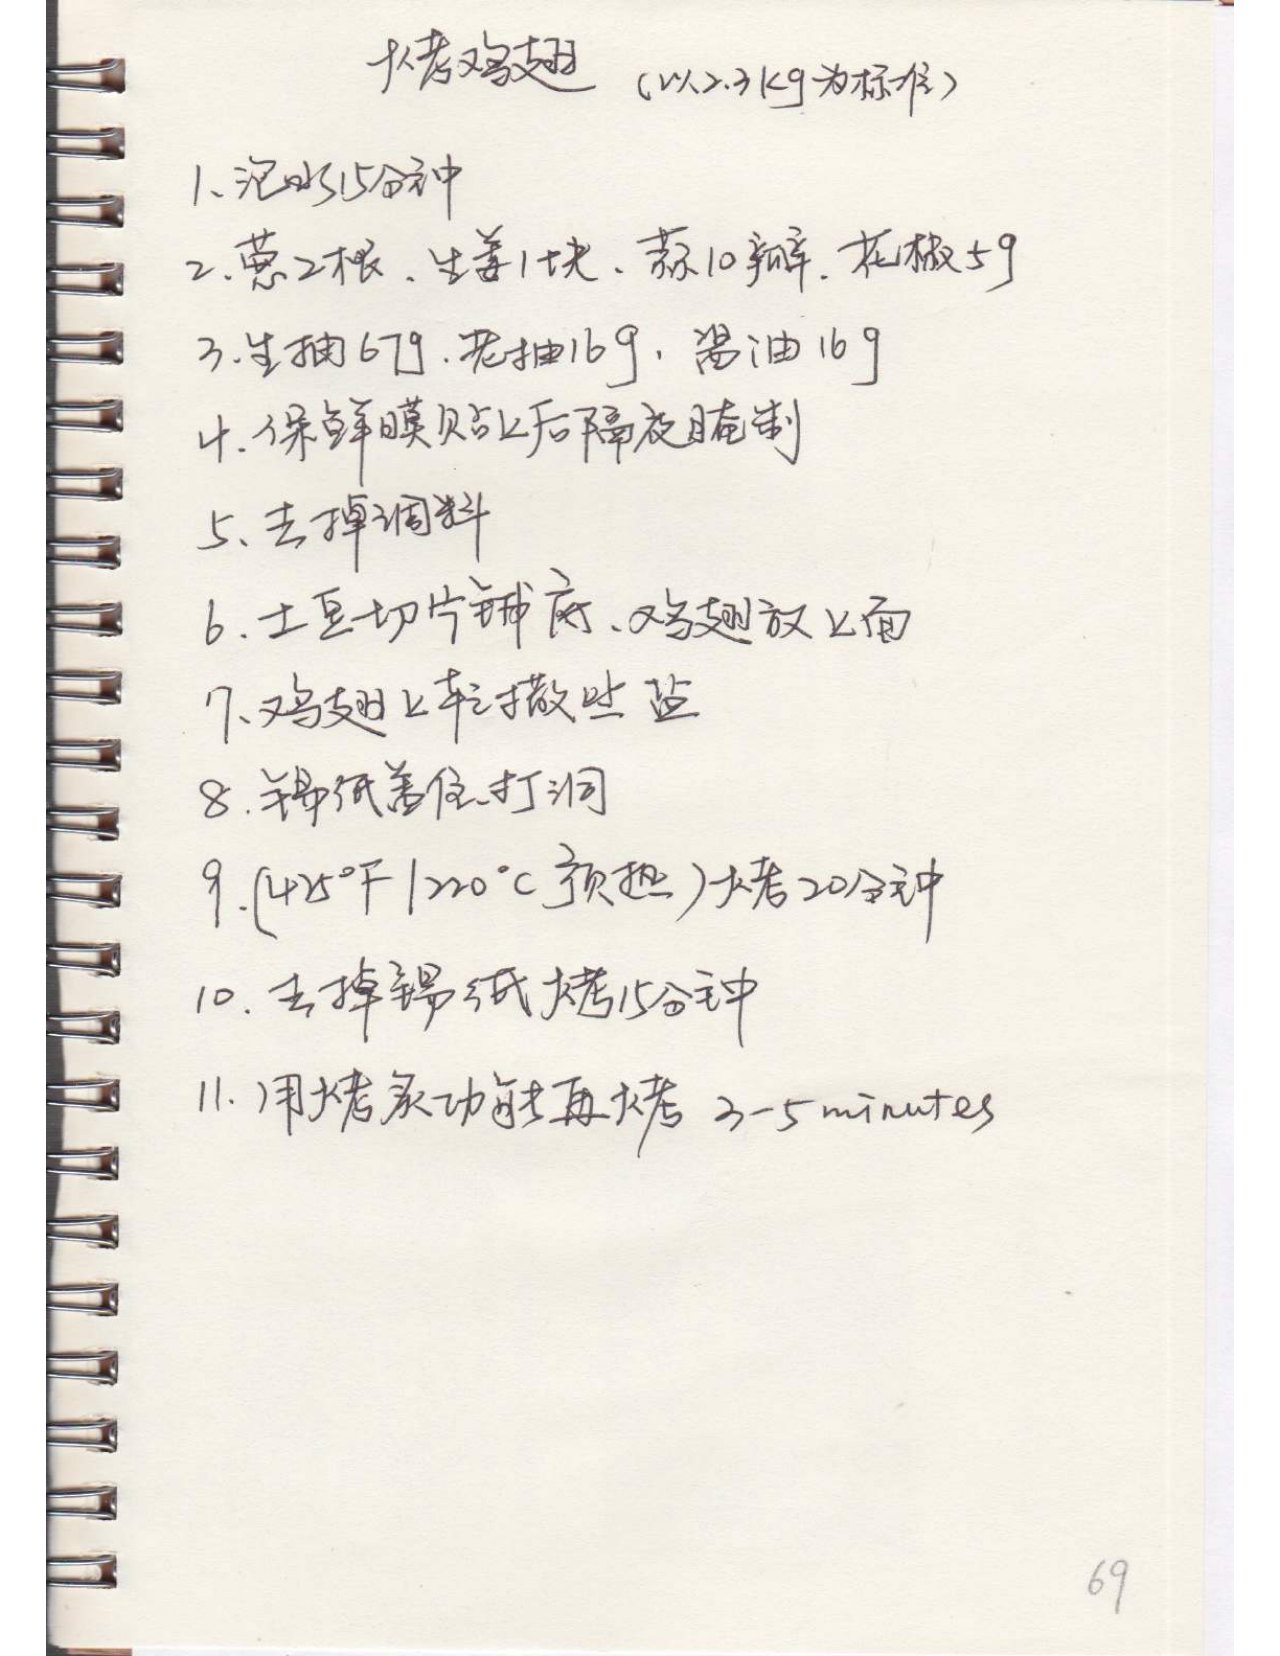 烤鸡翅 (以2.3kg为标准)
1、泡水15分钟
2、葱2根、生姜1块、蒜10瓣、花椒5g
3、生抽67g、老抽16g、酱油16g
4、保鲜膜贴上后隔夜腌制
5、去掉调料
6、土豆切片铺底、鸡翅放上面
7、鸡翅上轻撒些盐
8、锡纸盖住、打洞
9、(425°F|220°C预热)烤20分钟
10、去掉锡纸烤15分钟
11、用烤炙功能再烤 3-5 minutes
69